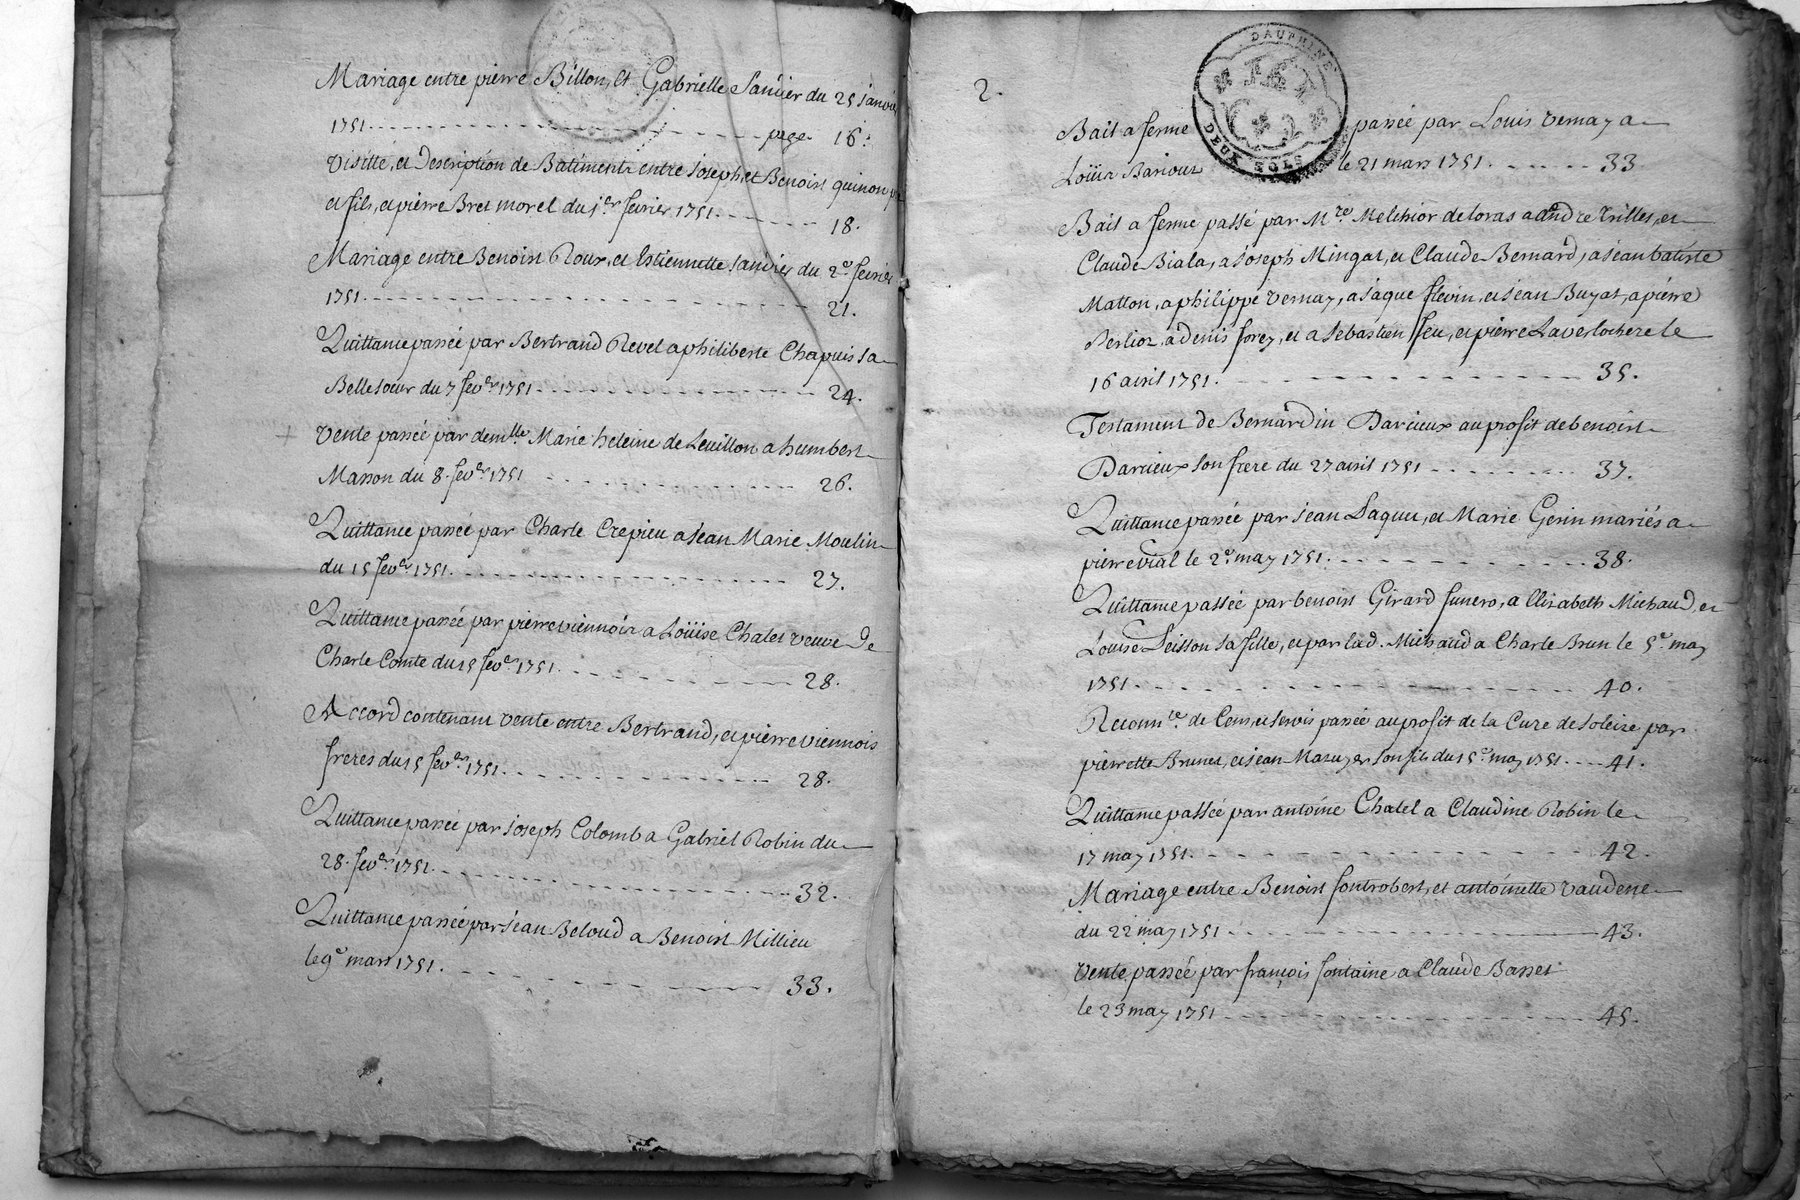 Mariage entre pierre Billon, et Gabrielle Sanier du 25 janvie
1751. page 16.
Visitte, et Description de Batiments entre Joseph, et Benoist quinon
et fils, et pierre Bret morel du 1er fevrier 1751. 18.
Mariage entre Benoist Roux, et Estiennette Sanier du 2e fevrier
1751. 21.
Quittance passée par Bertrand Revel a philiberte Chapuis sa
Belle soeur du 7 fevr 1751. 24.
+ Vente passée par demlle Marie heleine de Leuillon a humbert
Masson du 8. fevr 1751 26.
Quittance passée par Charle Crepieu a Jean Marie Moulin
du 15 fevr 1751. 27.
Quittance passée par pierre viennois a Loüise Chalet veuve de
Charle Comte du 15 fevr 1751. 28.
Accord contenant vente entre Bertrand, et pierre viennois
freres du 15 fevr 1751. 28.
Quittance passée par Joseph Colomb a Gabriel Robin du
28. fevr 1751. 32.
Quittance passée par Jean Beloud a Benoist Millieu
le 9e mars 1751. 33.
2.
DAUPHINE
DEUX SOLS
Bail a ferme passée par Louis vernay a
Loüis Bariou le 21 mars 1751. 33
Bail a ferme passé par Mre Melchior de loras a andre trilles, et
Claude Biala, a Joseph Mingat, et Claude Bernard, a jean batiste
Matton, a philippe vernay, a jaque flevin, et jean Buyat, a pierre
Berlioz, a denis forey, et a sebastien feu, et pierre Laverlochere le
16 avril 1751. 35.
Testament de Bernardin Darcieux au profit de benoist
Darcieux son frere du 27 avril 1751 37.
Quittance passée par jean Laquu, et Marie Gerin mariés a
pierre vial le 2e may 1751. 38.
Quittance passée par benoist Girard funero, a Elisabeth Michaud, et
Louise Leisson sa fille, et par lad. Michaud a Charle Brun le 5e may
1751. 40.
Reconnce de Cens, et servis passée au profit de la Cure de soleize par
pierrette Brunet, et jean Mazuyer son fils du 15e may 1751. 41.
Quittance passée par antoine Chalel a Claudine Robin le
17 may 1751. 42.
Mariage entre Benoist fontrobert, et antoinette vaudene
du 22 may 1751 43.
Vente passée par françois fontaine a Claude Basset
le 23 may 1751 45.